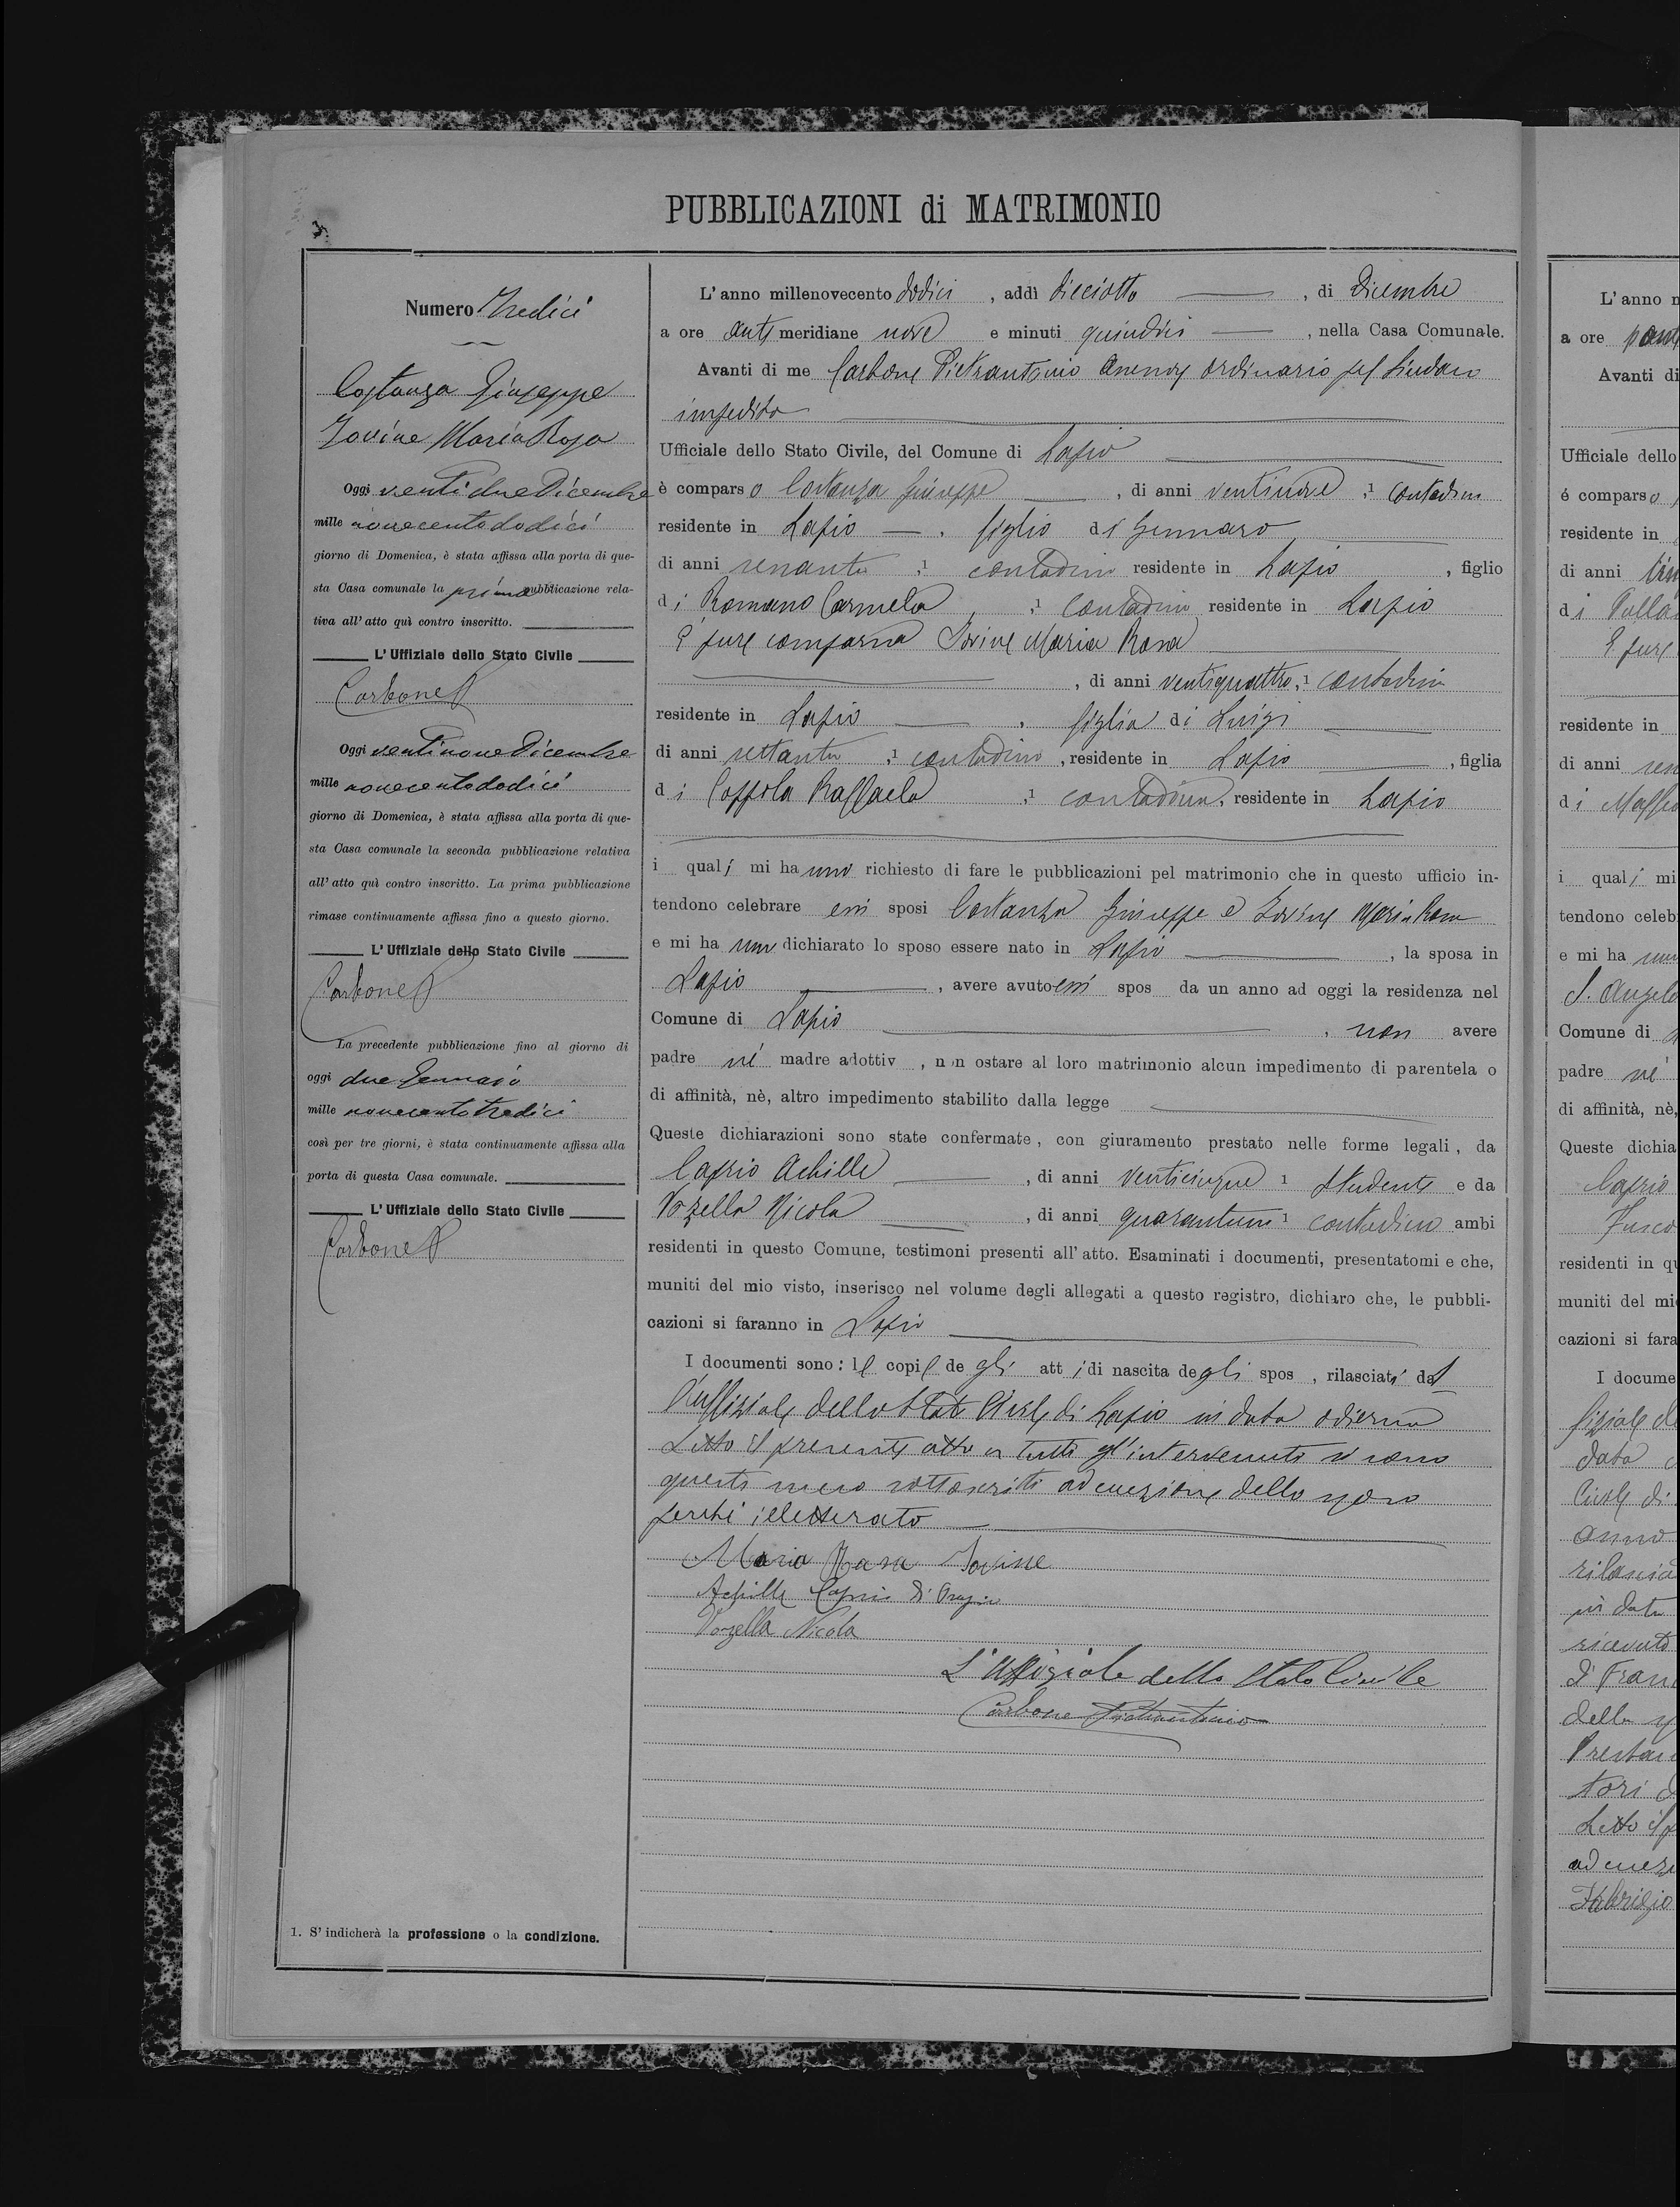 PUBBLICAZIONI di MATRIMONIO
Numero Tredici
Costanza Giuseppe
Iovine Maria Rosa
Oggi ventidue Dicembre
mille novecentododici
giorno di Domenica, è stata affissa alla porta di que-
sta Casa comunale la prima pubblicazione rela-
tiva all'atto quì contro inscritto.
L'Uffiziale dello Stato Civile
Carbone P
Oggi ventinove Dicembre
mille novecentododici
giorno di Domenica, è stata affissa alla porta di que-
sta Casa comunale la seconda pubblicazione relativa
all'atto quì contro inscritto. La prima pubblicazione
rimase continuamente affissa fino a questo giorno.
L'Uffiziale dello Stato Civile
Carbone P
La precedente pubblicazione fino al giorno di
oggi due Gennaio
mille novecentotredici
così per tre giorni, è stata continuamente affissa alla
porta di questa Casa comunale.
L'Uffiziale dello Stato Civile
Carbone P
1. S'indicherà la professione o la condizione.
L'anno millenovecento dodici, addì dieciotto, di Dicembre
a ore anti meridiane nove e minuti quindici, nella Casa Comunale.
Avanti di me Carbone Pietrantonio Assessore ordinario pel Sindaco
impedito
Ufficiale dello Stato Civile, del Comune di Lapio
è comparso Costanza Giuseppe, di anni ventinove, 1 contadino
residente in Lapio, figlio di Gennaro
di anni sessanta, 1 contadino residente in Lapio, figlio
di Romano Carmela, 1 contadina residente in Lapio
E pure comparsa Iovine Maria Rosa
, di anni ventiquattro, 1 contadina
residente in Lapio, figlia di Luigi
di anni settanta, 1 contadino, residente in Lapio, figlia
di Coppola Raffaela, 1 contadina, residente in Lapio
i quali mi hanno richiesto di fare le pubblicazioni pel matrimonio che in questo ufficio in-
tendono celebrare essi sposi Costanza Giuseppe e Iovine Maria Rosa
e mi hanno dichiarato lo sposo essere nato in Lapio, la sposa in
Lapio, avere avuto essi spos da un anno ad oggi la residenza nel
Comune di Lapio, non avere
padre né madre adottiv , non ostare al loro matrimonio alcun impedimento di parentela o
di affinità, nè, altro impedimento stabilito dalla legge
Queste dichiarazioni sono state confermate, con giuramento prestato nelle forme legali, da
Caprio Achille, di anni venticinque 1 studente e da
Vozella Nicola, di anni quarantuno 1 contadino ambi
residenti in questo Comune, testimoni presenti all'atto. Esaminati i documenti, presentatomi e che,
muniti del mio visto, inserisco nel volume degli allegati a questo registro, dichiaro che, le pubbli-
cazioni si faranno in Lapio
I documenti sono: le copie de gli atti di nascita degli spos , rilasciati dal
l'uffiziale dello Stato Civile di Lapio in data odierna
Letto il presente atto a tutti gl'intervenuti si sono
questi meco sottoscritti ad eccezione dello sposo
perché illetterato
Maria Rosa Iovine
Achille Caprio di
Vozella Nicola
L'Uffiziale dello Stato Civile
Carbone Pietrantonio
L'anno
a ore
Avanti di
Ufficiale dello
é comparso
residente in
di anni
di
E pure
residente in
di anni
di
i quali mi
tendono celeb
e mi ha
S. Angelo
Comune di
padre né
di affinità, nè,
Queste dichia
Caprio
Fusco
residenti in qu
muniti del mi
cazioni si fara
I docume
data
Civile di
anno
rilascia
in data
ricevuto
di Fran
della
tori
Letto il
Fabrizio